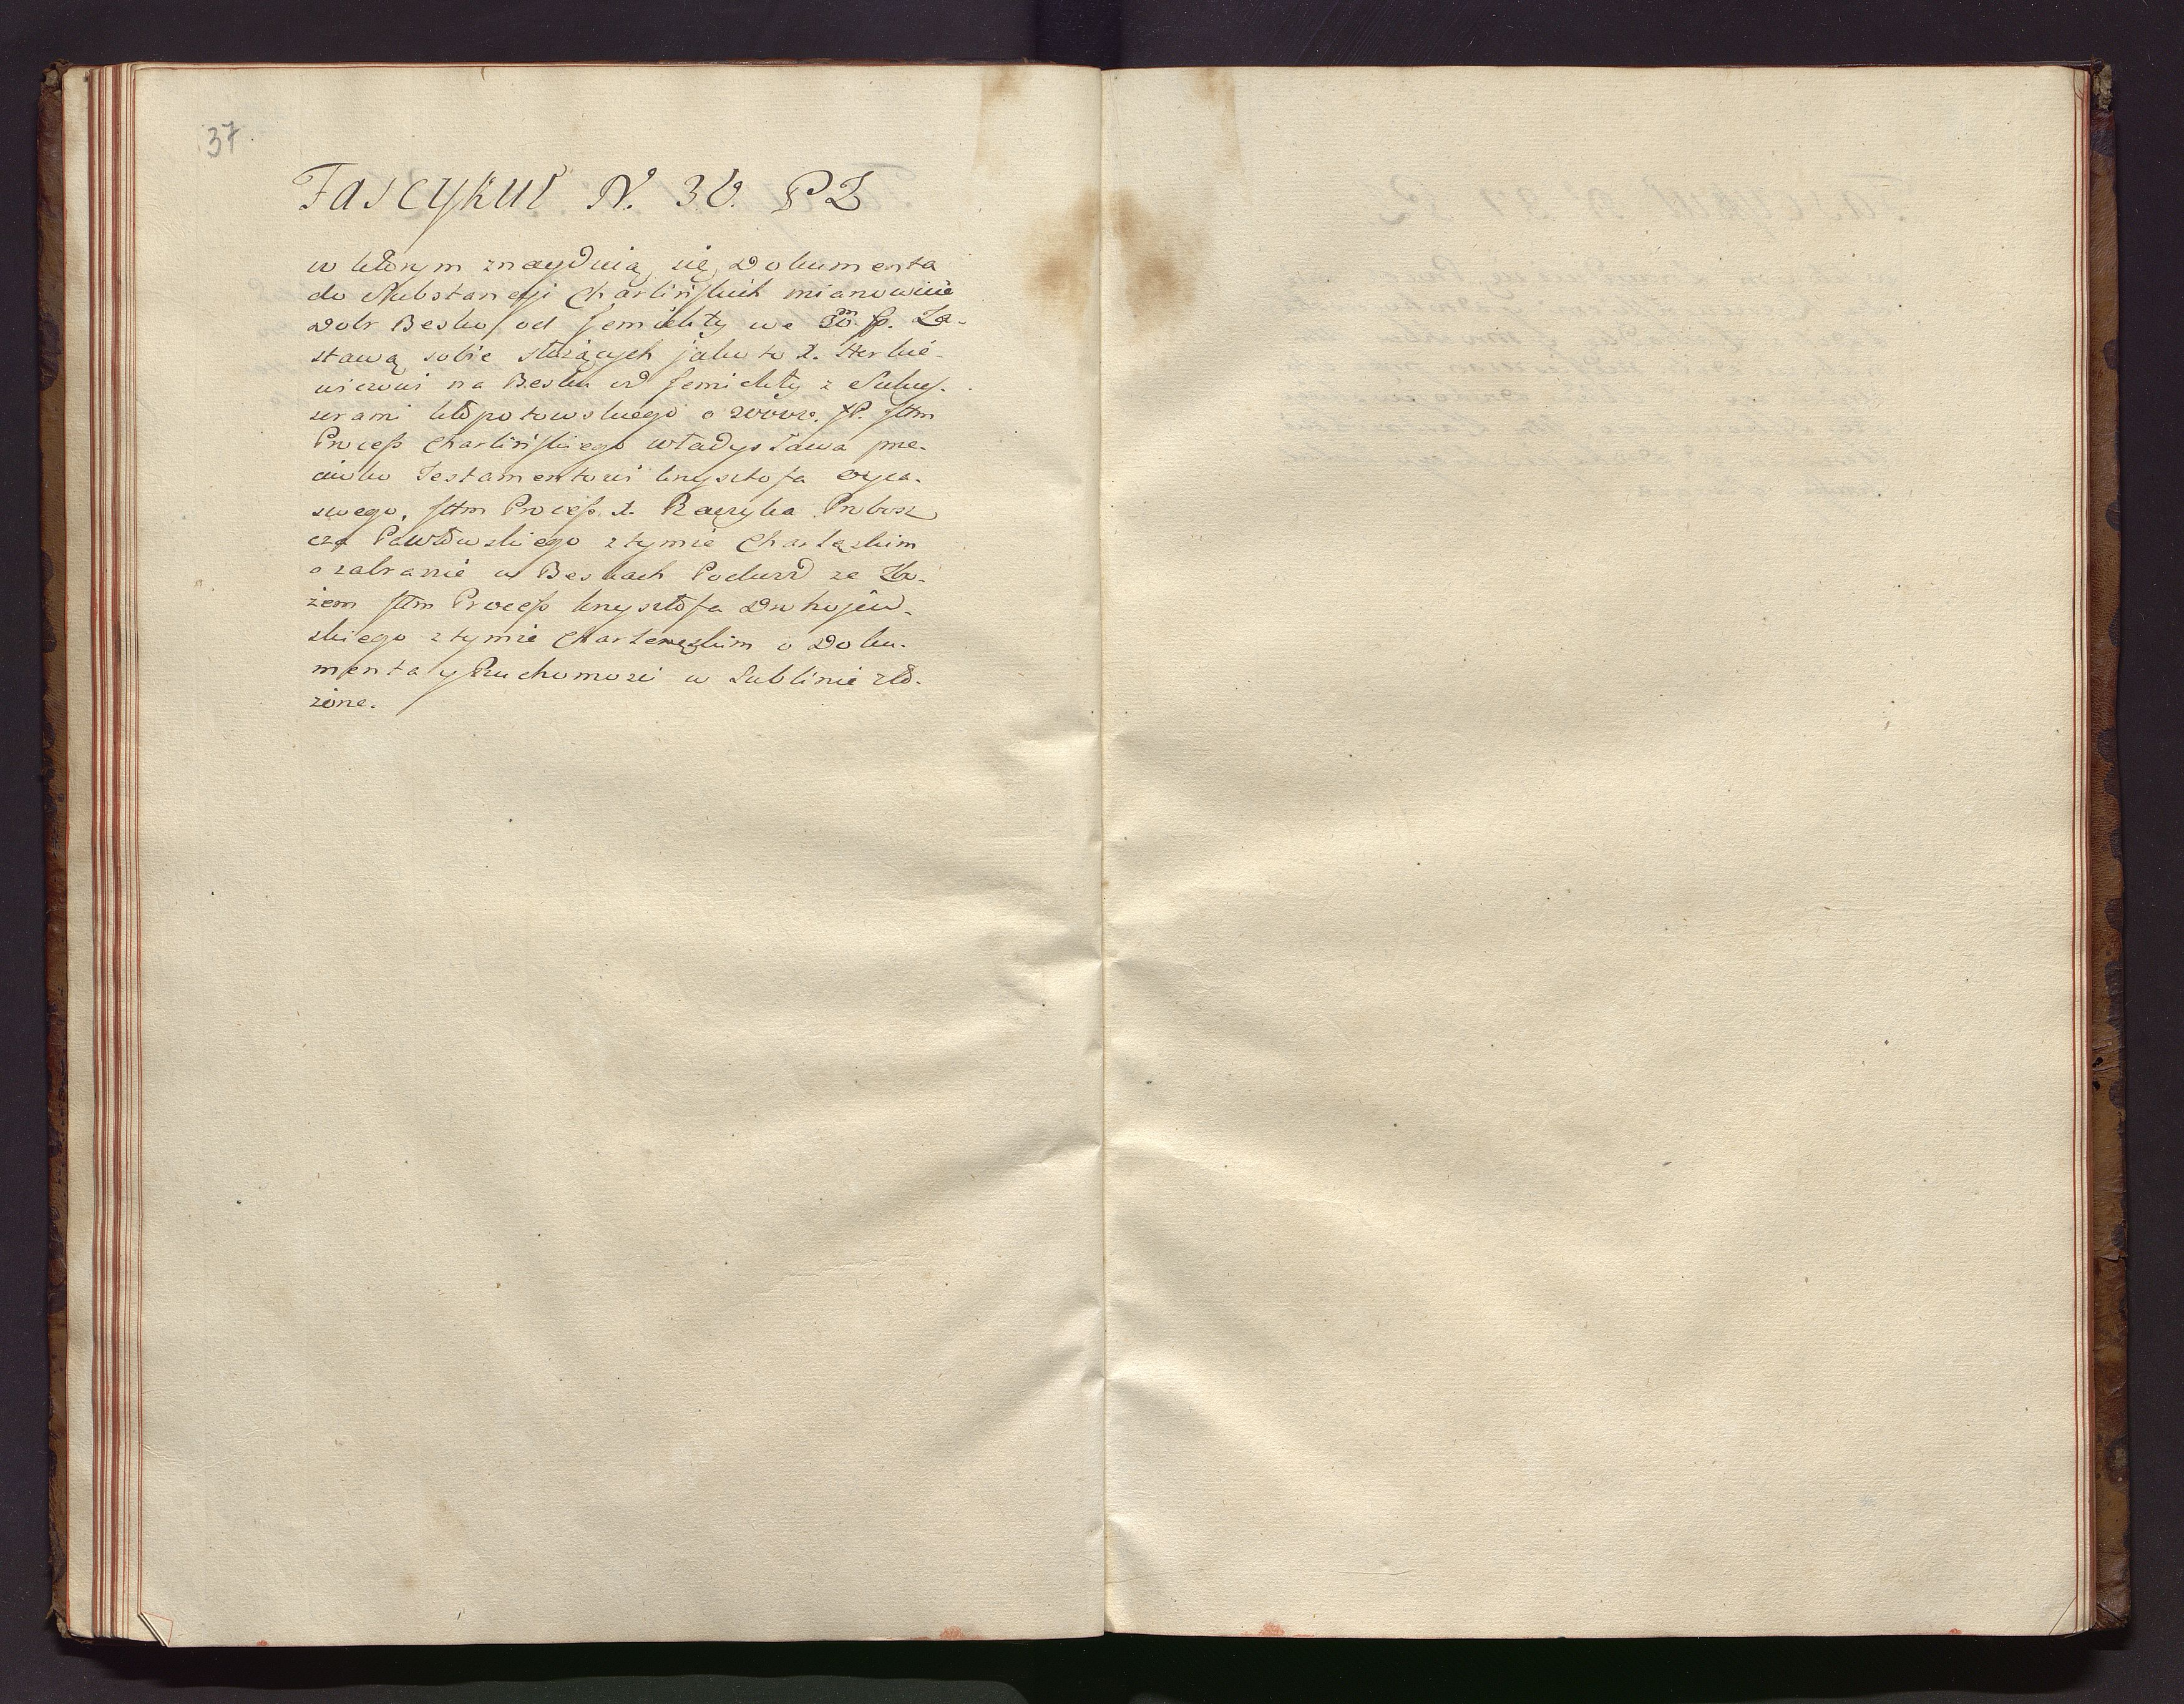 37.
Fascykuł N. 30. PZ
w którym znayduią się Dokumenta
do Substancyi Charlińskich mianowicie
Dobr Besko od Siemichty we 30. Za-
stawą sobie służących jako to X.
na Besku od z Sukces-
sorami Kłopotowskiego o 20000. Item
Process Charlińskiego Władysława prze-
ciwko Testamentowi Krzysztofa Oyca
swego, Item Process X. Raczyka Probosz
cza Pawłowskiego z tymże
o zabranie w Beskach Podwod ze Zbo-
żem Item Process Krzysztofa Drohojew-
skiego z tymże o Doku-
menta y Ruchomości w Lublinie zło-
żone.